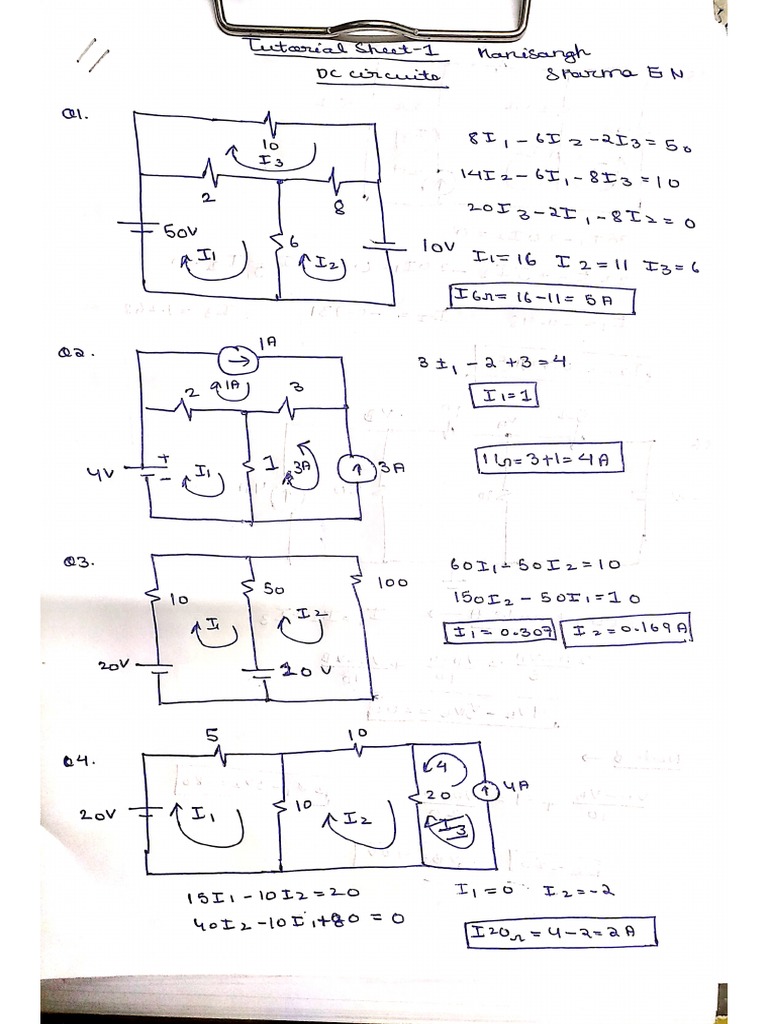 Tutorial Sheet-1
DC circuits
Q1.
10
I3
2
8
50V
I1
6
I2
10V
8I1 - 6I2 - 2I3 = 50
14I2 - 6I1 - 8I3 = 10
20I3 - 2I1 - 8I2 = 0
I1 = 16 I2 = 11 I3 = 6
I6Ω = 16 - 11 = 5A
Q2.
1A
1A
2
3
4V
+
-
I1
1
3A
3A
3I1 - 2 + 3 = 4
I1 = 1
1Ω = 3+1 = 4A
Q3.
10
50
100
I
I2
20V
10V
60I1 - 50I2 = 10
150I2 - 50I1 = 10
I1 = 0.307
I2 = 0.169A
Q4.
5
10
20V
I1
10
I2
4
20
I3
4A
15I1 - 10I2 = 20
40I2 - 10I1 + 80 = 0
I1 = 0 I2 = -2
I20Ω = 4 - 2 = 2A